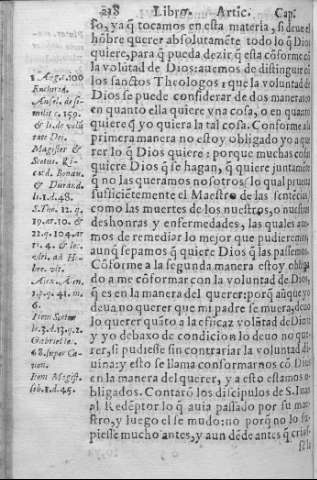 218 Libro. Artic. Cap.
so, ya q̃ tocamos en esta materia, si deue el
hõbre querer absolutamẽte todo lo q̃ Dios
quiere, para q̃ pueda dezir q̃ esta cõforme cõ
la volũtad de Dios: auemos de distinguir cõ
los sanctos Theologos: que la voluntad de
Dios se puede considerar de dos maneras o
en quanto ella quiere vna cosa, o en quanto
quiere q̃ yo quiera la tal cosa. Conforme a la
primera manero no estoy obligado yo a que
rer lo q̃ Dios quiere: porque muchas cosas
quiere Dios q̃ se hagan, q̃ quiere juntamẽte
q̃ no las queramos nosotros (lo qual prueua
sufficiẽtemente el Maestro de las sentẽcias)
como las muertes de los nuestros, o nuestras
deshonras y enfermedades, las quales aue-
mos de remediar lo mejor que pudieremos,
aunq̃ sepamos q̃ quiere Dios q̃ las passemos.
Cõforme a la segunda manera estoy obliga
do a me cõformar con la voluntad de Dios,
q̃ es en la manera del querer: porq̃ aũque yo
deua no querer que mi padre se muera, deuo
lo querer quãto a la eficaz volũtad de Dios:
y yo debaxo de condicion lo deuo no que-
rer, si pudiesse sin contrariar la voluntad di-
uina: y esto se llama conformarnos cõ Dios
en la manera del querer, y a esto estamos o-
bligados. Contarõ los discipulos de S. Iuan
al Redẽptor lo q̃ auia passado por su mae-
stro, y luego el se mudo: no porq̃ no lo su-
piesse mucho antes, y aun dẽde antes q̃ criasse
1 Aug. c. 100
Enchirid.
Ansel. de si-
milit c. 159.
& li. de volũ
tate Dei.
Magister &
Scotus. Ri-
card. Bonau.
& Durand.
li. 1. d. 48.
S. Tho. 12. q.
19. ar. 10. &
22. q. 104. ar
Alex. Alen.
1. p. q. 41. m.
6.
Item Scotus
li. 3. d. 13. q. 2.
Gabriel lec.
68. super Ca-
non.
Item Magist.
lib. 1. d. 45.